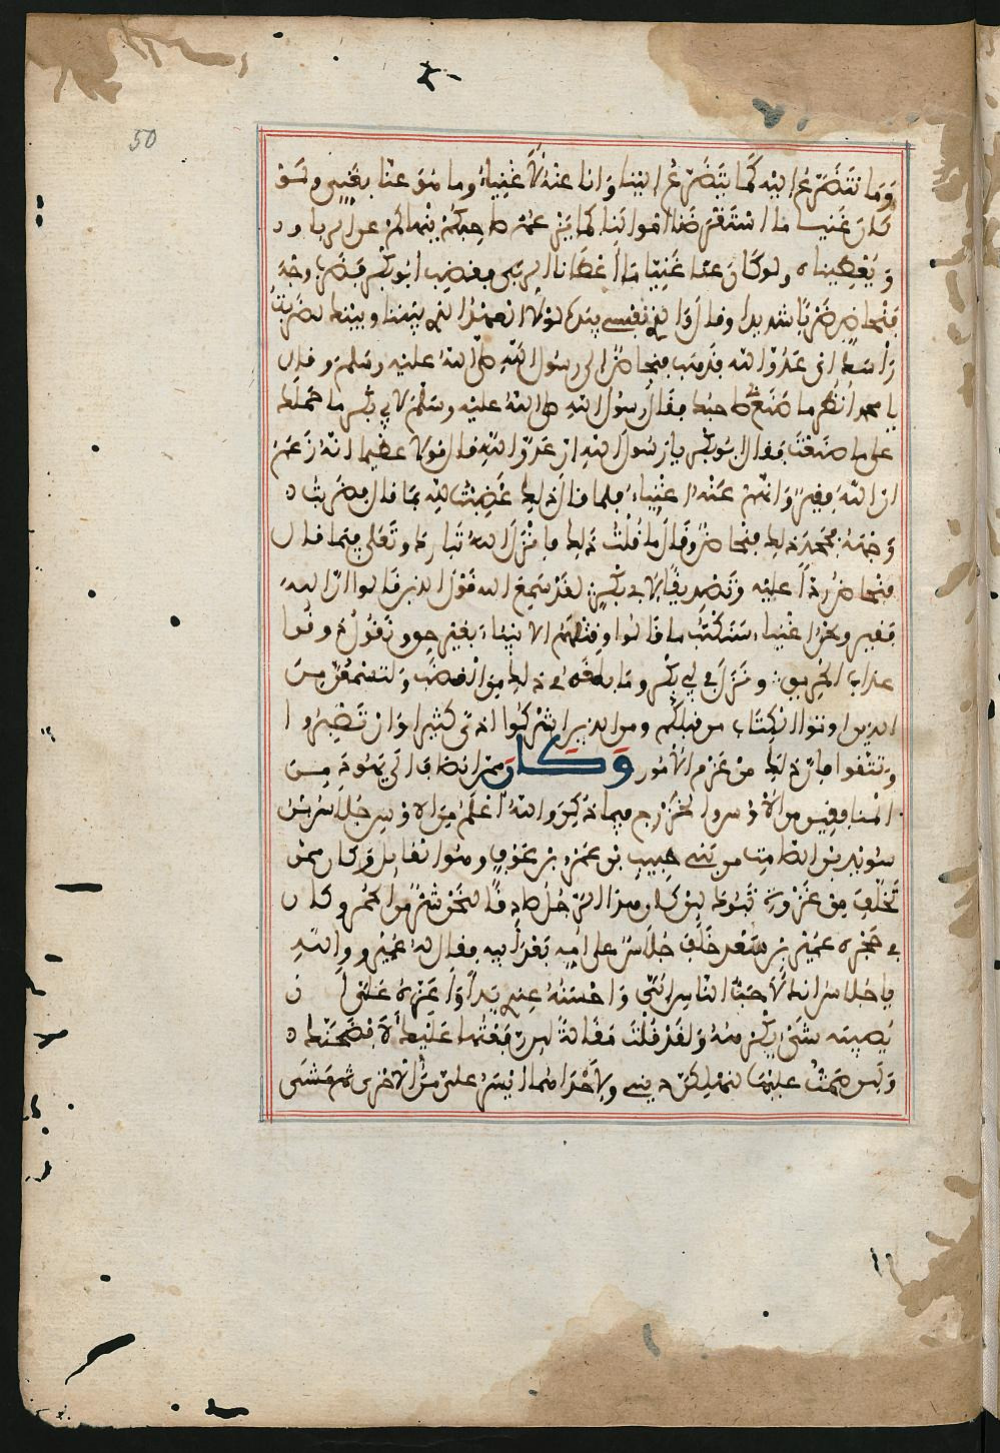 50
وَمَا نَتَضَرَّعُ اليْه كَما يَتَضَرَّعُ اليْنا وَانا عنهُ لأَغْنِياءُ وما هُوَ عنّا بغَنِي ولَوْ
كانَ غَنيا ما اسْتَقْرَضَنا امْوالَنا كما يَزْعمُ صاحِبكمْ ينْهاكمْ عن الرباء
وَيُعْطِيناه ولو كانَ عنّا غَنِيّا مَا أعْطانا الرِبَى فغضب ابوبكْر فضرب وجْهَ
فِنْحاص ضرْبًا شديدا وقال وَالذِي نَفْسِي بيَدِه لوْلا العهْدُ الذِي بيْننا وبيْنك لضرَبْتُ
رَاْسَك اىْ عَدُوَّ الله فذهَب فِنحاصُ الى رسُول اللهِ صلى اللهُ عليْه وسَلمَ وقال
يا محمد انْظُر ما صَنَعَ صاحبُك فقال رسُولُ اللهِ صلى اللهُ عليْه وسَلمَ لابِي بكْر ما حَمَلَكَ
على ما صنعْتَ فقال ابُوبكْر يا رَسُولَ اللهِ ان عَدُوَّ اللهِ قال قوْلا عظِيما انّهُ زَعَمَ
ان اللهَ فقِيرٌ وَانّهُمْ عَنْهُ اغْنِياءُ فلما قال ذلِك غَضِبْتُ للهِ مما قال فضَرَبْتُ
وَجْهَهُ فجَحَدَ ذلِك فِنْحاصُ وقَالَ ما قُلْتُ ذلِك فانْزَلَ اللهُ تَبارَكَ وتَعَلى فِيما قال
فِنْحاصُ رَدًّا عليْه وَتَصْدِيقًا لابِي بكْرٍ لقَدْ سَمِعَ اللهُ قَوْلَ الذِينَ قَالوا انّ اللهَ
فقِيرٌ ونحْنُ اغْنِياءُ سَنَكْتُبُ ما قَالُوا وقَتْلَهُمُ الانْبِئَاءَ بِغَيْرِ حقٍ ونَقُولُ ذوقُوا
عذابَ الحْرِيقِ ونَزَلَ فِي ابِي بكْر وما بلَغَهُ فِي ذلِك مِنَ الْغَضَب وَلتَسْمَعُنَّ مِنَ
الذِينَ اوتوا الْكِتَابَ مِن قبْلِكُمْ ومِن الذِينَ اشْرَكُوا اذًى كثِيرا وَان تَصْبِرُوا
وَتتّقُوا فإنَّ ذلِكَ مِنْ عَزْمِ الأُمُورِ وَكَانَ مِمّن انْضافَ الى يَهُودَ مِنَ
الْمُنافِقِينَ مِن الأوْسِ والخَزْرجِ فِيما ذُكِرَ وَاللهُ اعْلَمُ مِن الاوْسِ جُلاسُ بْنُ
سُوَيْدِ بْنِ الصّامِتِ مِن بَنِي حبِيبِ بْنِ عَمْرِو بْنِ عَوْفٍ وهُوَ القائِلُ وَكانَ مِمّن
تَخَلّفَ عِن غَزْوَةِ تَبُوكَ لئِنْ كان هذا الرّجُلُ صادِقًا لنَحْنُ شَرٌّ مِنَ الْحُمُرِ وكانَ
فِي حَجْرِه عُمَيْرُ بْنُ سَعْد خَلَفَ جُلاسٌ على امِّه بَعْدَ أبِيه فقال لهُ عُمَيْرٌ واللهِ
يا جُلاسُ انكَ لأَحَبُّ النّاسِ الَيَّ وَاحْسَنُهُ عِنْدِي يَداً وَاعَزّهُ علَيَّ أن
يُصِيبَه شَيْءٌ يكْرَهُهُ وَلقَدْ قُلْتَ مَقَالةً لئِن رَفَعْتُها عَليْكَ لأَفْضَحَنّكَ
وَلئِن صَمَتُّ عليْها ليَهْلِكَنَّ دِينِي ولإحْدَاهُما ايْسَرُ عليّ مِنَ الأخْرى ثم مَشَى